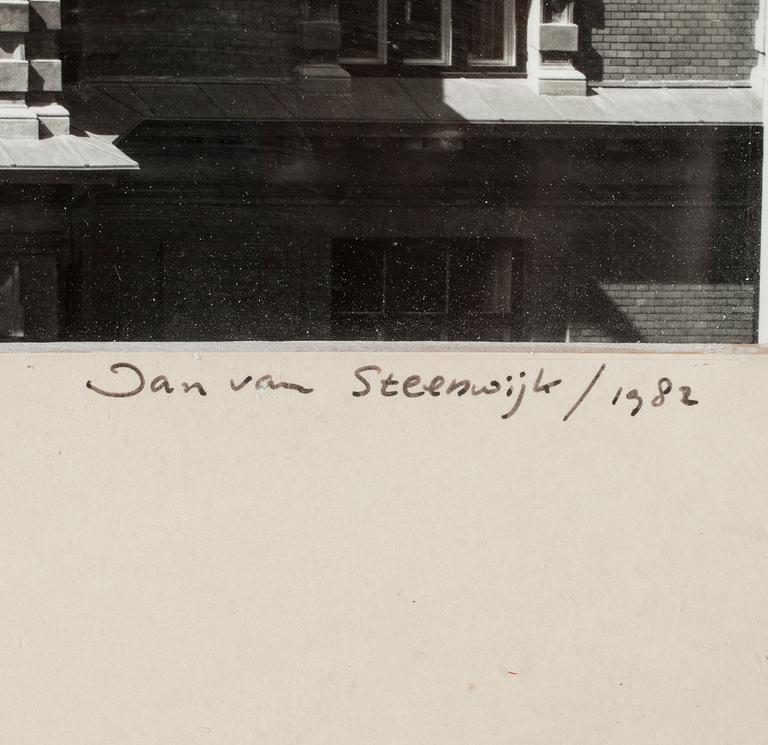 Jan van Steenwijk / 1982